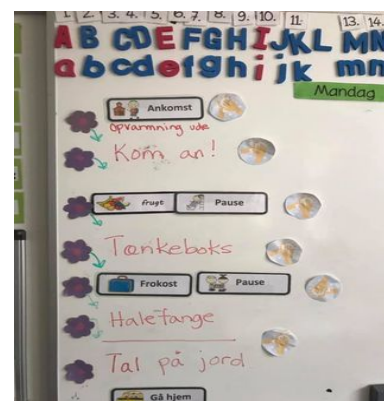 1. 2. 3. 4. 5. 6. 7. 8. 9. 10. 11. 13. 14.
A B C D E F G H I J K L M N
a b c d e f g h i j k m n
Mandag
Ankomst
Opvarmning ude
Kom an!
frugt Pause
Tænkeboks
Frokost Pause
Halefange
Tal på jord
Gå hjem